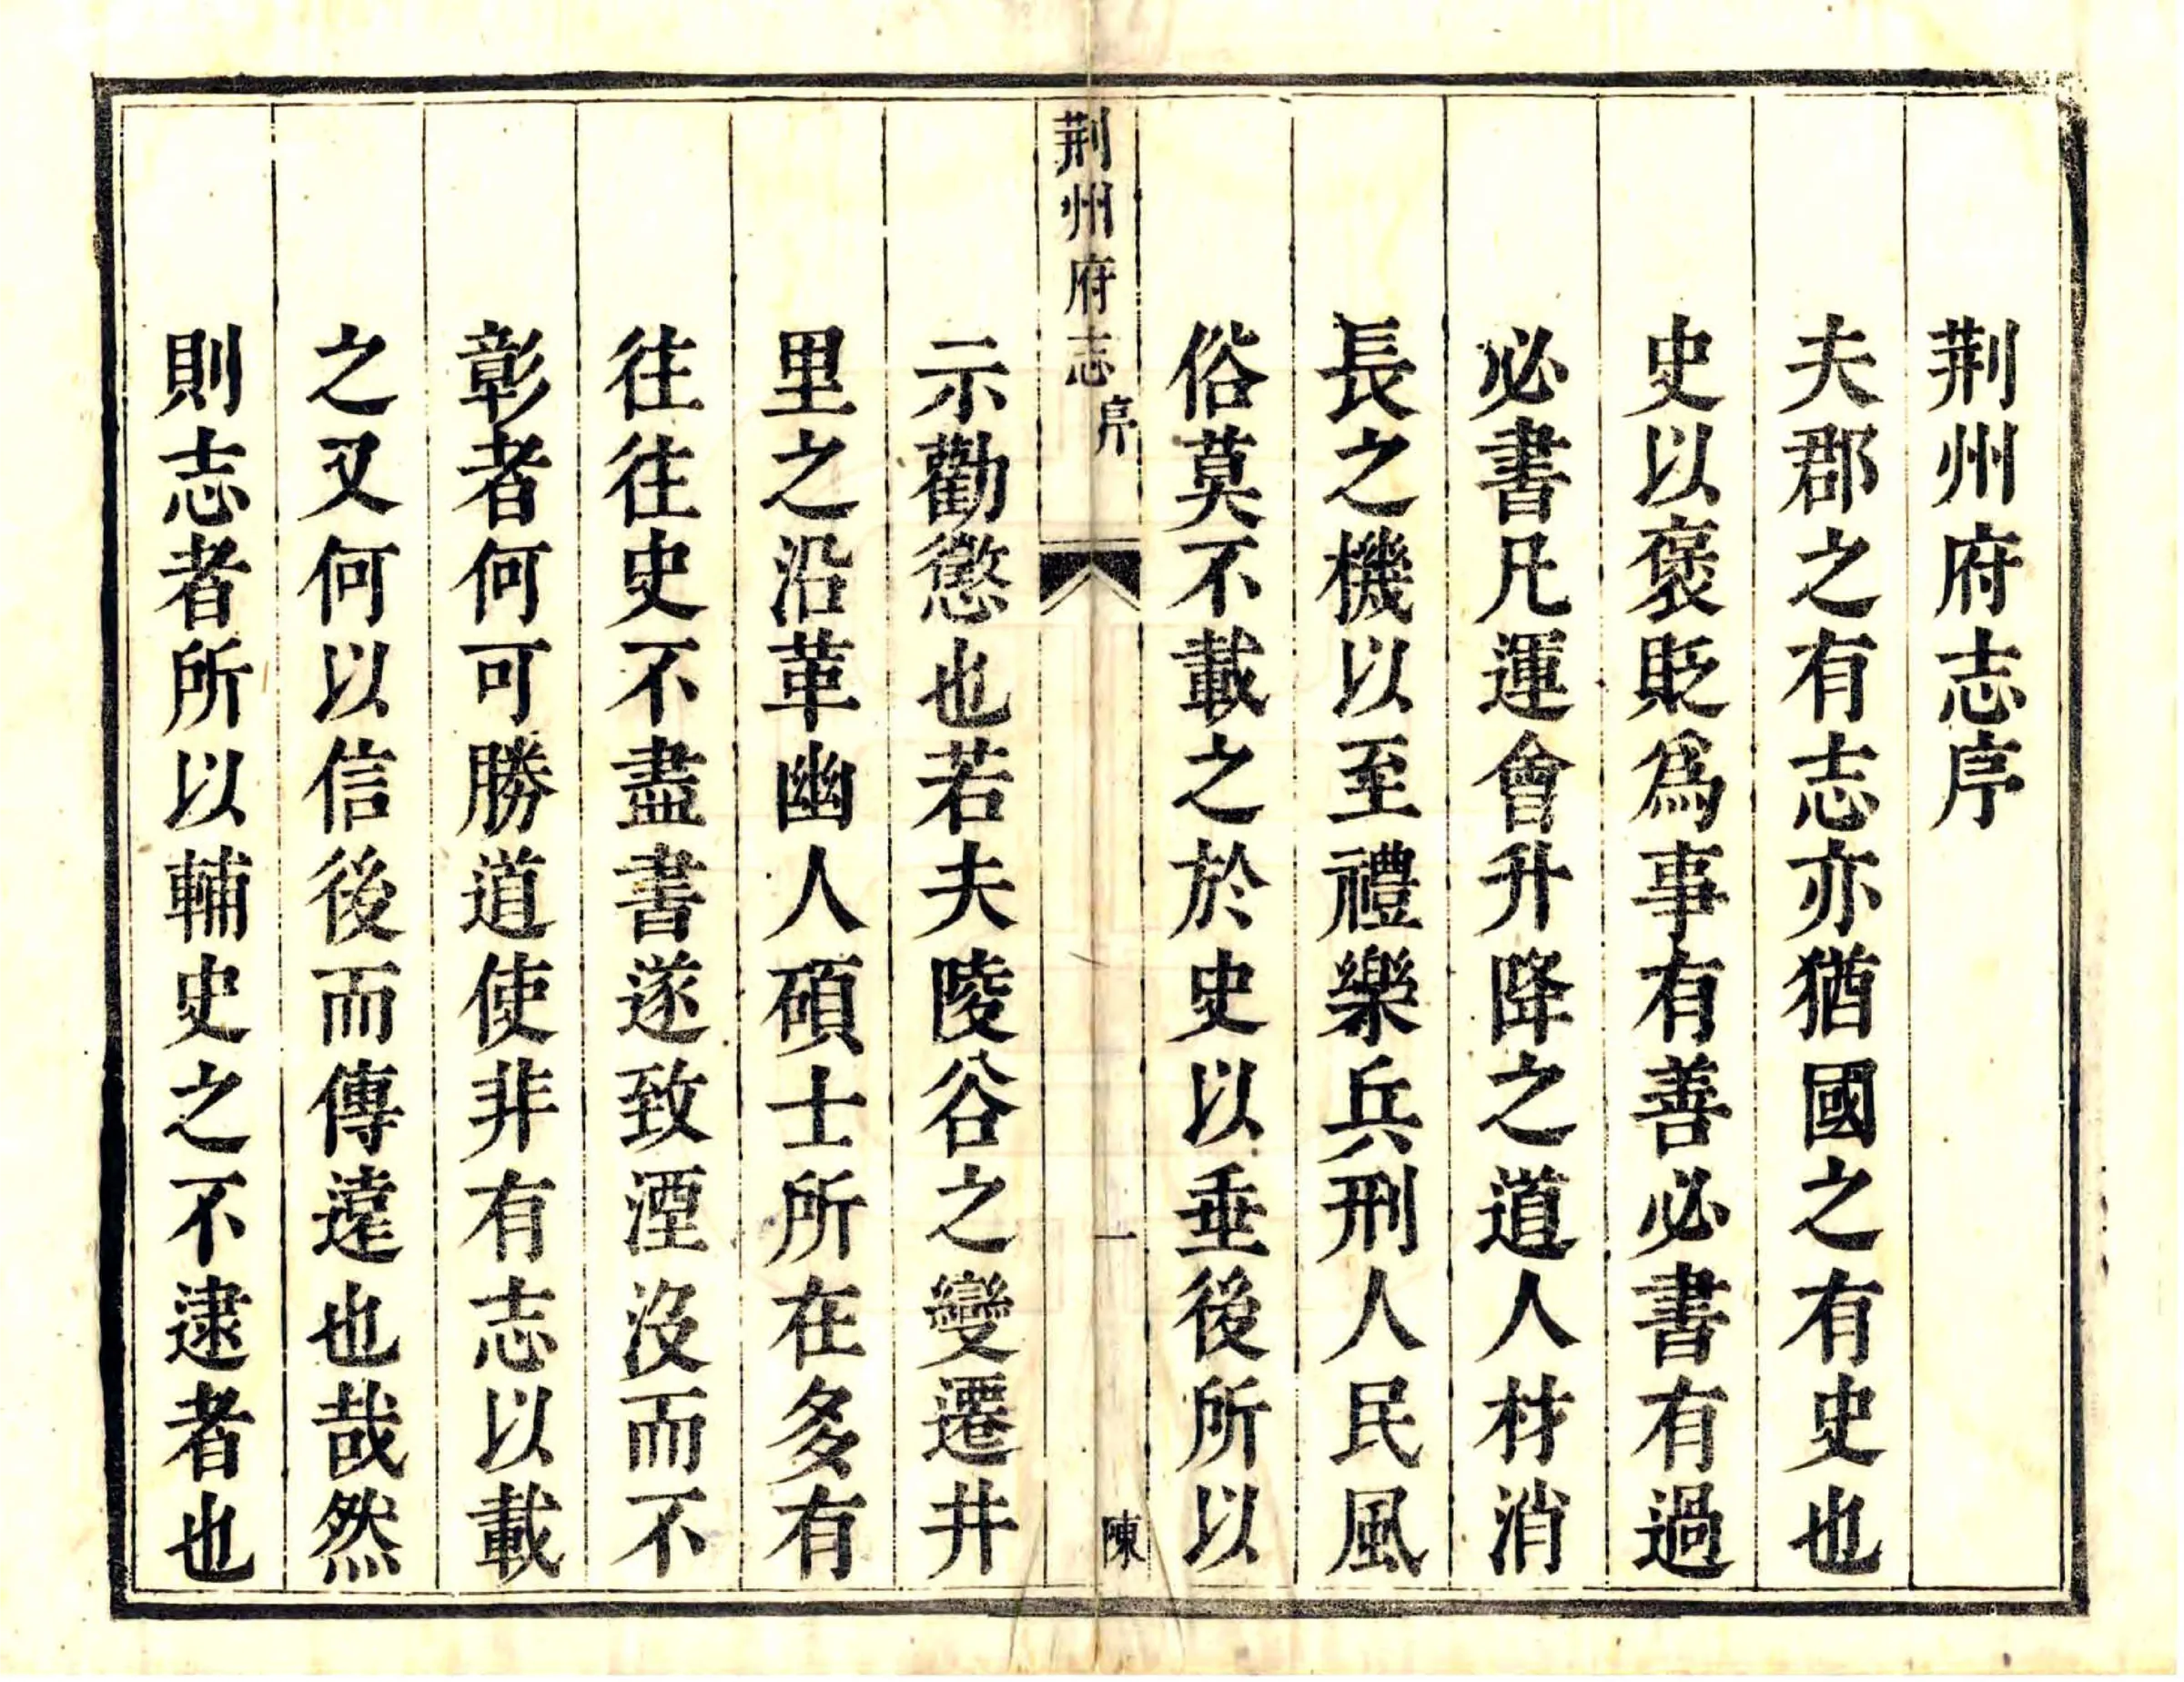 荆州府志序
夫郡之有志亦猶國之有史也
史以褒貶爲事有善必書有過
必書凡運會升降之道人材消
長之機以至禮樂兵刑人民風
俗莫不載之於史以垂後所以
荆州府志
序
一
陳
示勸懲也若夫陵谷之變遷井
里之沿革幽人碩士所在多有
往往史不盡書遂致湮沒而不
彰者何可勝道使非有志以載
之又何以信後而傳遠也哉然
則志者所以輔史之不逮者也